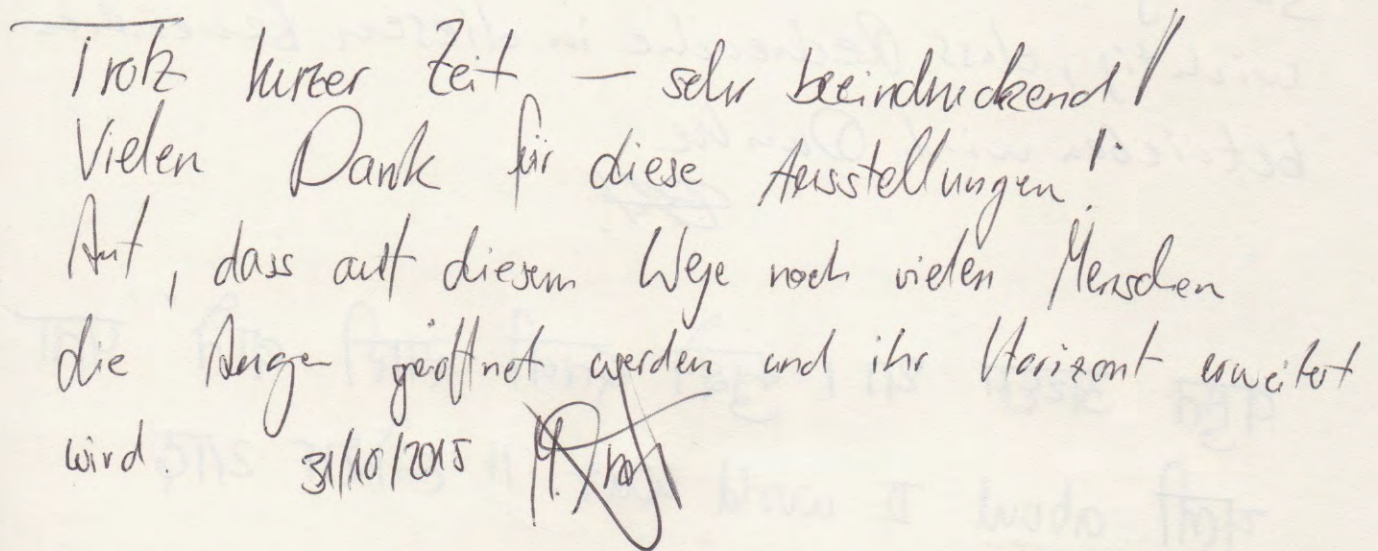 Trotz kurzer Zeit – sehr beeindruckend!
Vielen Dank für diese Ausstellungen!
Auf, dass auf diesem Wege noch vielen Menschen
die Augen geöffnet werden und ihr Horizont erweitert
wird. 31/10/2015